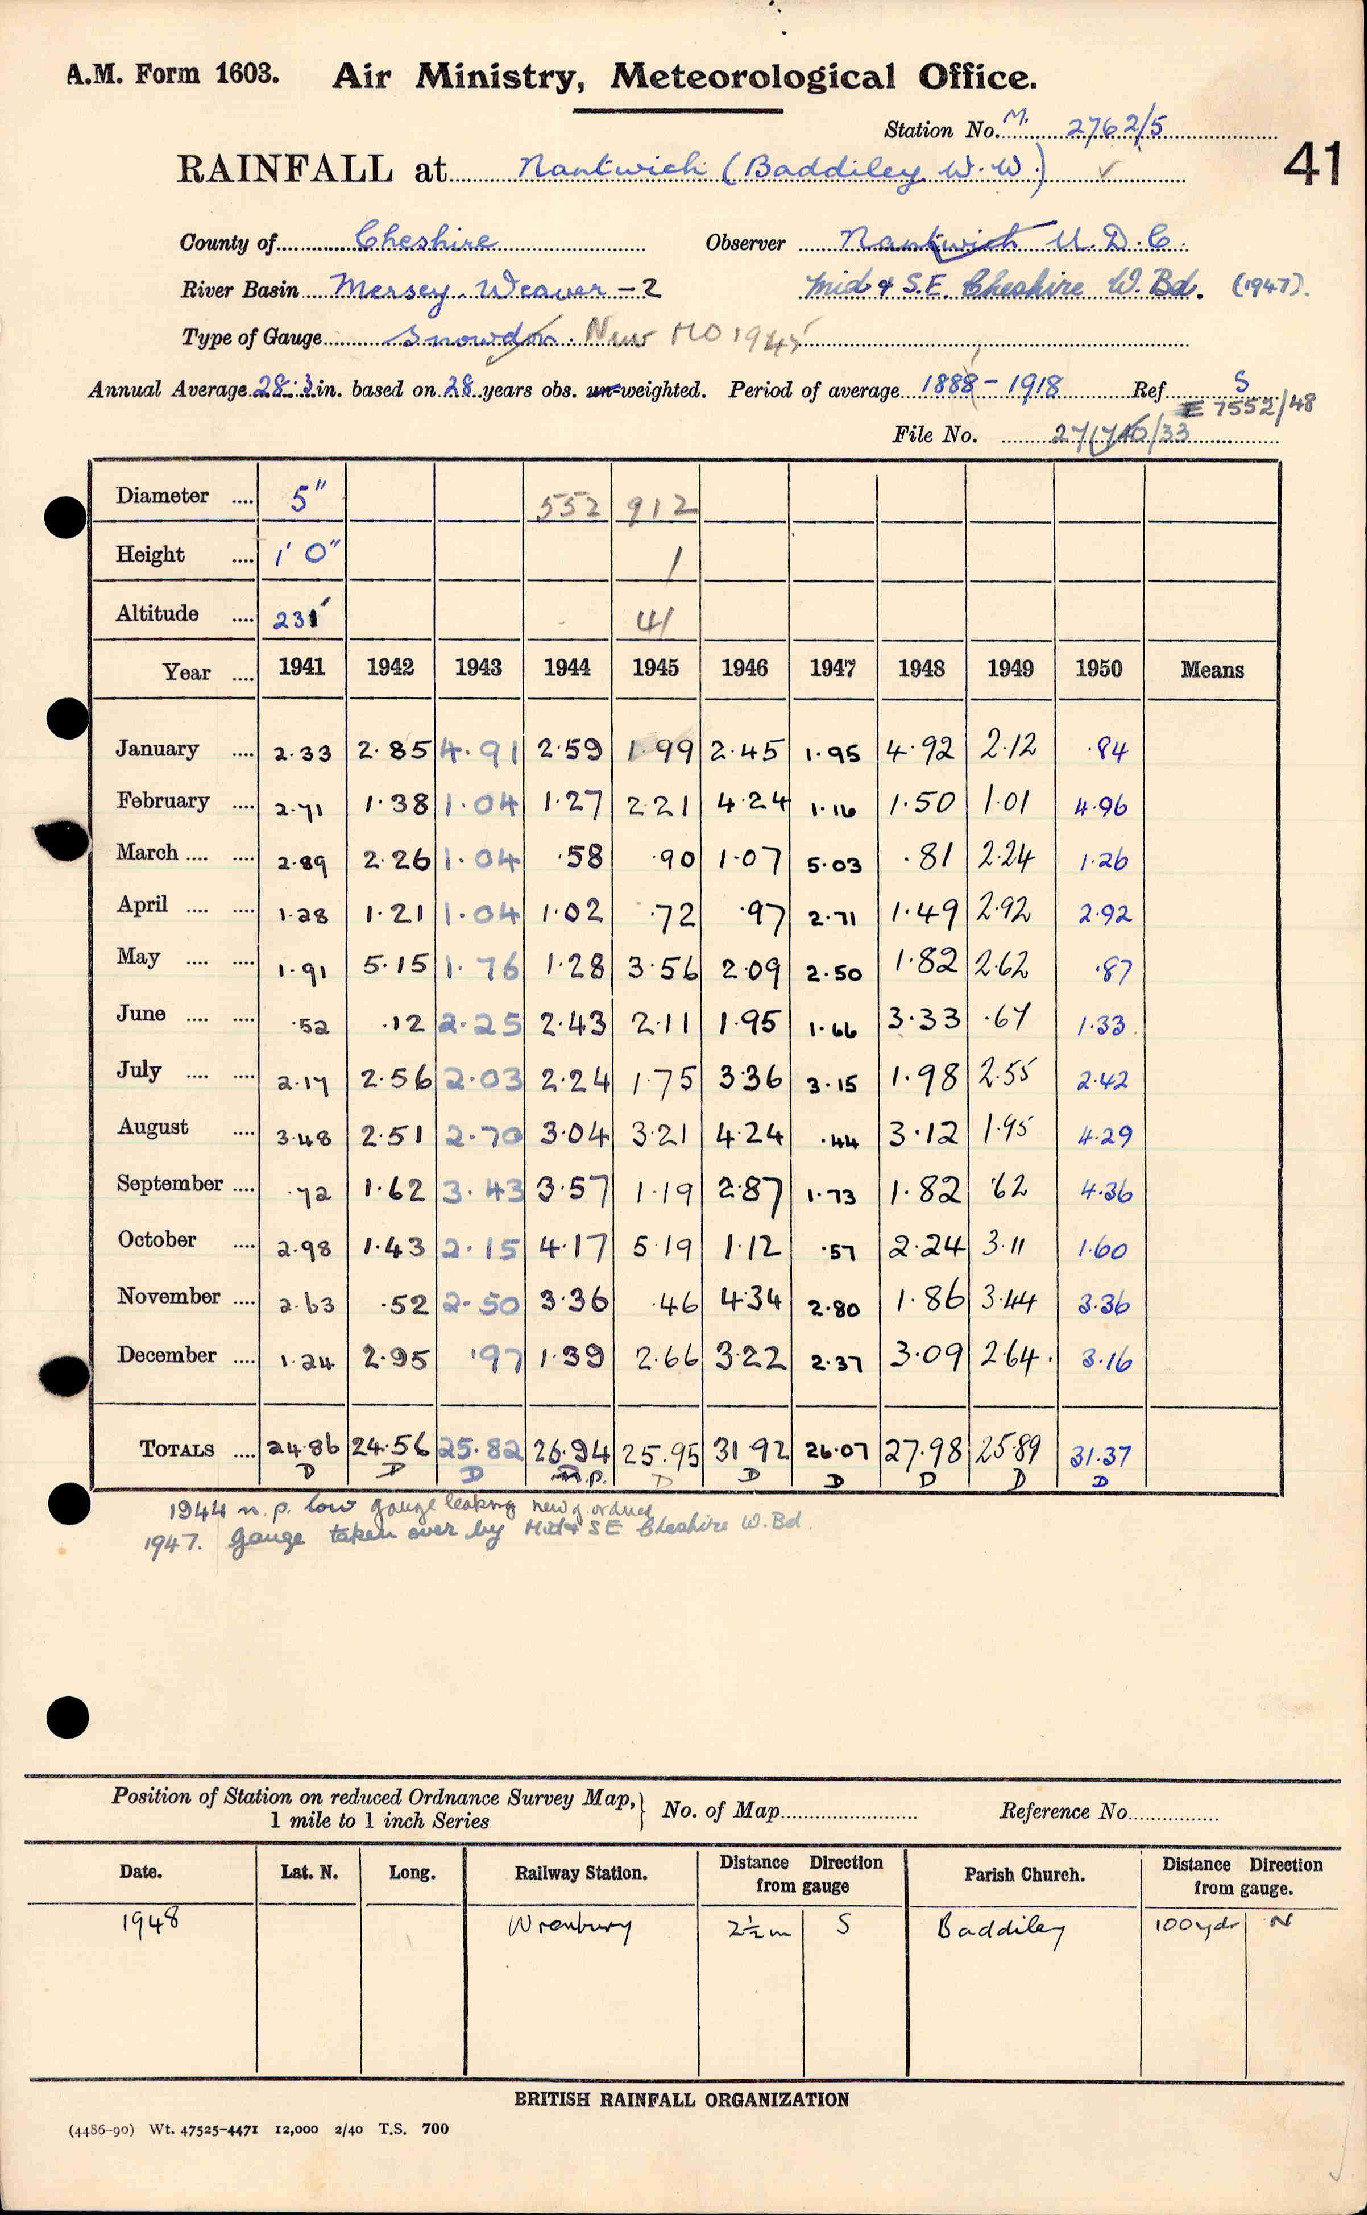 A.M. Form 1603. Air Ministry, Meteorological Office.
Station No. M. 2762/5
41
RAINFALL at Nantwich (Baddiley W.W.) ✓
County of Cheshire Observer Nantwich U.D.C.
River Basin Mersey. Weaver - 2 Mid & S.E. Cheshire W. Bd. (1947).
Type of Gauge Snowdon. New MO 1945
Annual Average 28.3 in. based on 28 years obs. un-weighted. Period of average 1888 - 1918 Ref. S
E 7552/48
File No. 27/740/33
Diameter .... 5" 552 912
Height .... 1' 0" 1
Altitude .... 231'
Year .... 1941 1942 1943 1944 1945 1946 1947 1948 1949 1950 Means
January .... 2.33 2.85 4.91 2.59 1.99 2.45 1.95 4.92 2.12 .84
February .... 2.71 1.38 1.04 1.27 2.21 4.24 1.16 1.50 1.01 4.96
March .... .... 2.89 2.26 1.04 .58 .90 1.07 5.03 .81 2.24 1.26
April .... .... 1.28 1.21 1.04 1.02 .72 .97 2.71 1.49 2.92 2.92
May .... .... 1.91 5.15 1.76 1.28 3.56 2.09 2.50 1.82 2.62 .87
June .... .... .52 .12 2.25 2.43 2.11 1.95 1.66 3.33 .67 1.33
July .... .... 2.17 2.56 2.03 2.24 1.75 3.36 3.15 1.98 2.55 2.42
August .... 3.48 2.51 2.70 3.04 3.21 4.24 .44 3.12 1.95 4.29
September .... .72 1.62 3.43 3.57 1.19 2.87 1.73 1.82 .62 4.36
October .... 2.98 1.43 2.15 4.17 5.19 1.12 .57 2.24 3.11 1.60
November .... 2.63 .52 2.50 3.36 .46 4.34 2.80 1.86 3.44 3.36
December .... 1.24 2.95 .97 1.39 2.66 3.22 2.37 3.09 2.64. 3.16
TOTALS .... 24.86 24.56 25.82 26.94 25.95 31.92 26.07 27.98 25.89 31.37
D D D n.p. D D D D D D
1944 n.p. low gauge leaking new g ordered
1947. gauge taken over by Mid & SE Cheshire W. Bd.
Position of Station on reduced Ordnance Survey Map, 1 mile to 1 inch Series } No. of Map Reference No.
Date. Lat. N. Long. Railway Station. Distance Direction from gauge Parish Church. Distance Direction from gauge.
1948 Wrenbury 2½ m S Baddiley 100 yds N
BRITISH RAINFALL ORGANIZATION
(4486-90) Wt. 47525-4471 12,000 2/40 T.S. 700